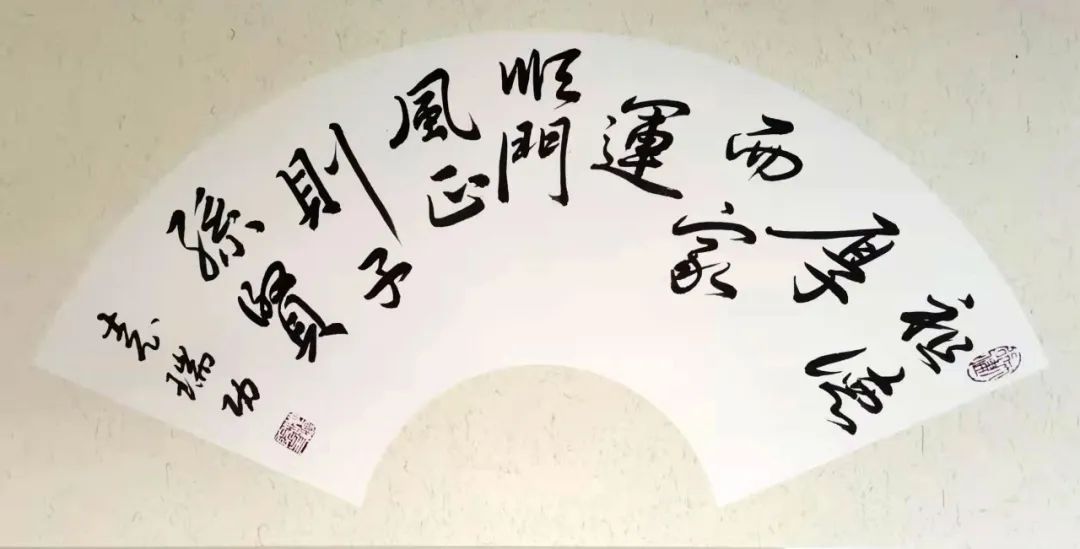 祖德
厚
而家
運
順門
風正
則子
孫賢
袁瑞功